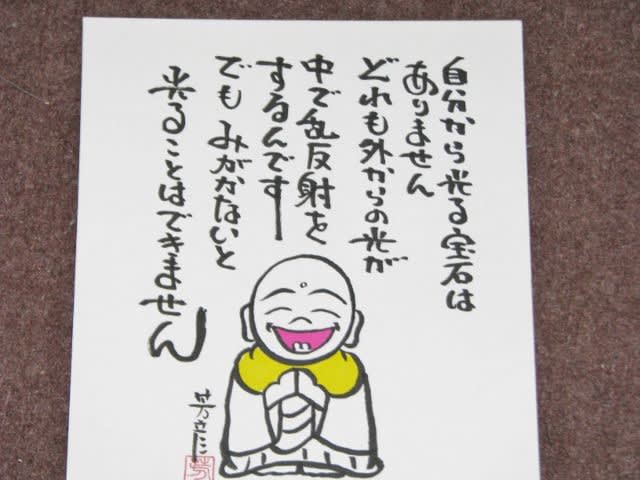 自分から光る宝石は
ありません
どれも外からの光が
中で乱反射を
するんです
でもみがかないと
光ることはできません